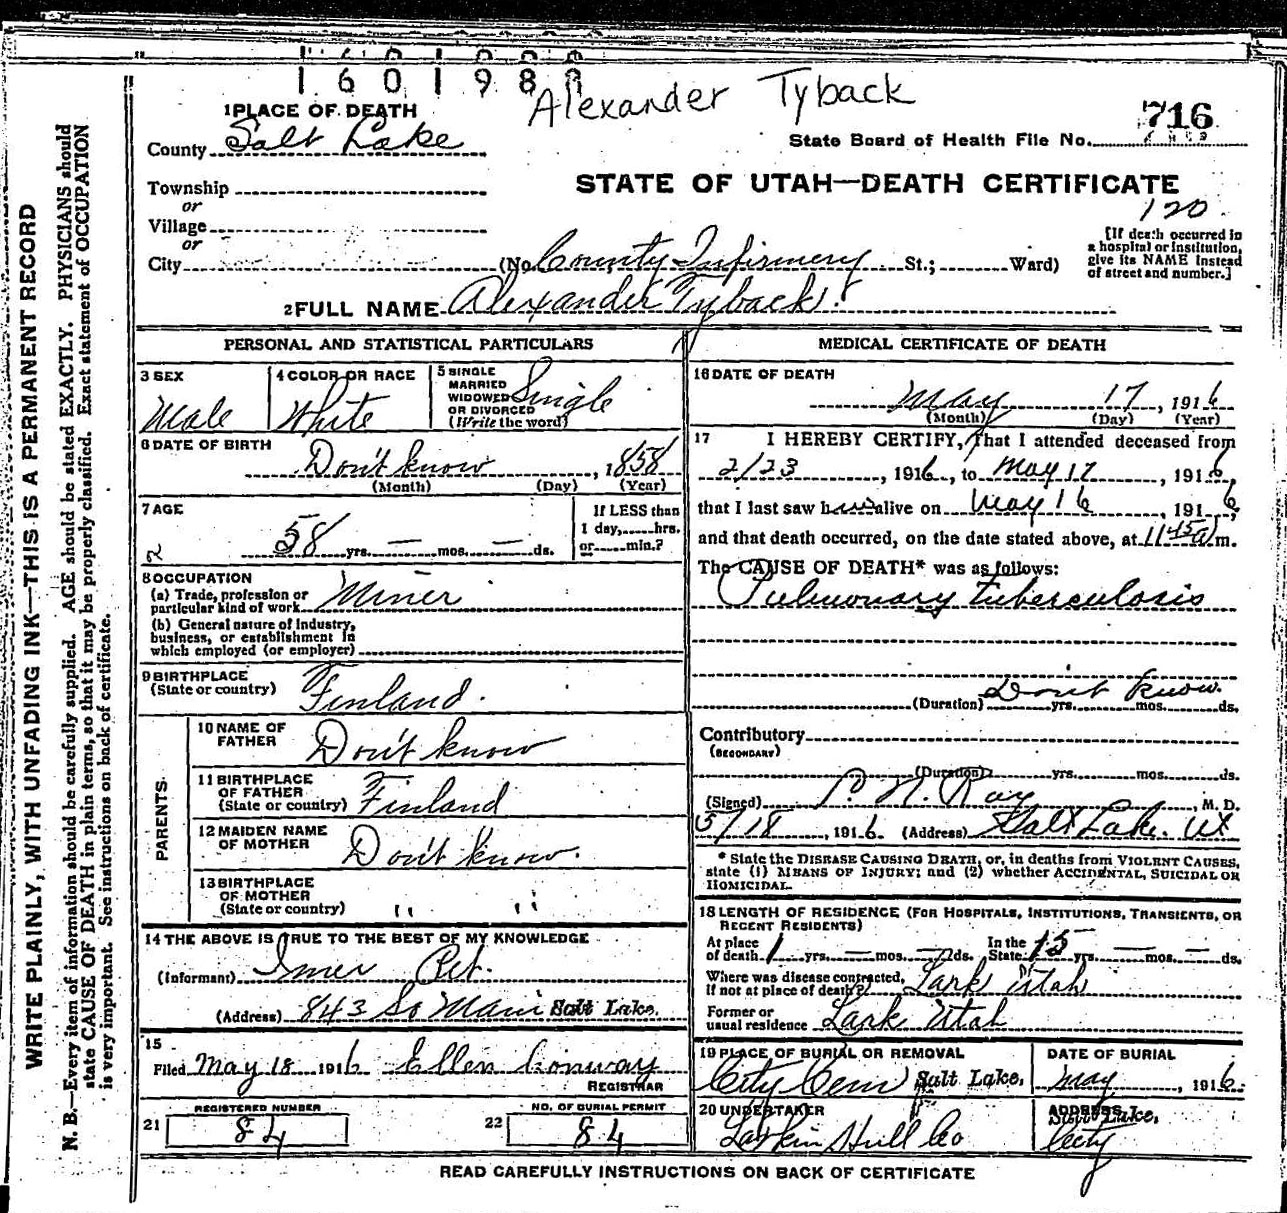 1601988
Alexander Tyback
716
1 PLACE OF DEATH
State Board of Health File No.
County Salt Lake
Township
STATE OF UTAH—DEATH CERTIFICATE
or
120
Village
or
City (No. County Infirmery St.; Ward)
[If death occurred in
a hospital or institution,
give its NAME instead
of street and number.]
2 FULL NAME Alexander Tyback
PERSONAL AND STATISTICAL PARTICULARS
3 SEX
Male
4 COLOR OR RACE
White
5 SINGLE
MARRIED
WIDOWED
OR DIVORCED
(Write the word)
Single
6 DATE OF BIRTH
Don't know, 1858
(Month) (Day) (Year)
7 AGE
58 yrs. — mos. — ds.
If LESS than
1 day, hrs.
or min.?
8 OCCUPATION
(a) Trade, profession or
particular kind of work Miner
(b) General nature of industry,
business, or establishment in
which employed (or employer)
9 BIRTHPLACE
(State or country) Finland.
PARENTS
10 NAME OF
FATHER Don't know
11 BIRTHPLACE
OF FATHER
(State or country) Finland
12 MAIDEN NAME
OF MOTHER Don't know.
13 BIRTHPLACE
OF MOTHER
(State or country) " "
14 THE ABOVE IS TRUE TO THE BEST OF MY KNOWLEDGE
(Informant)
(Address) 843 So Main Salt Lake.
15
Filed May 18 1916 Ellen Conway
REGISTRAR
REGISTERED NUMBER
21 84
NO. OF BURIAL PERMIT
22 84
MEDICAL CERTIFICATE OF DEATH
16 DATE OF DEATH
May 17, 1916
(Month) (Day) (Year)
17 I HEREBY CERTIFY, That I attended deceased from
2/23, 1916, to May 17, 1916,
that I last saw him alive on May 16, 1916,
and that death occurred, on the date stated above, at 11 45 a m.
The CAUSE OF DEATH* was as follows:
Pulmonary tuberculosis
Don't know.
(Duration) yrs. mos. ds.
Contributory
(SECONDARY)
(Duration) yrs. mos. ds.
(Signed) P. N. Ray, M. D.
5/18, 1916 (Address) Salt Lake. Ut
* State the DISEASE CAUSING DEATH, or, in deaths from VIOLENT CAUSES,
state (1) MEANS OF INJURY; and (2) whether ACCIDENTAL, SUICIDAL OR
HOMICIDAL.
18 LENGTH OF RESIDENCE (FOR HOSPITALS, INSTITUTIONS, TRANSIENTS, OR
RECENT RESIDENTS)
At place
of death 1 yrs. — mos. — ds.
In the
State 15 yrs. — mos. — ds.
Where was disease contracted,
If not at place of death? Lark Utah
Former or
usual residence Lark Utah
19 PLACE OF BURIAL OR REMOVAL
City Cem Salt Lake.
DATE OF BURIAL
May, 1916.
20 UNDERTAKER
Larkin Hull Co
ADDRESS
Salt Lake.
City
READ CAREFULLY INSTRUCTIONS ON BACK OF CERTIFICATE
WRITE PLAINLY, WITH UNFADING INK—THIS IS A PERMANENT RECORD
N. B.—Every item of information should be carefully supplied. AGE should be stated EXACTLY. PHYSICIANS should
state CAUSE OF DEATH in plain terms, so that it may be properly classified. Exact statement of OCCUPATION
is very important. See instructions on back of certificate.